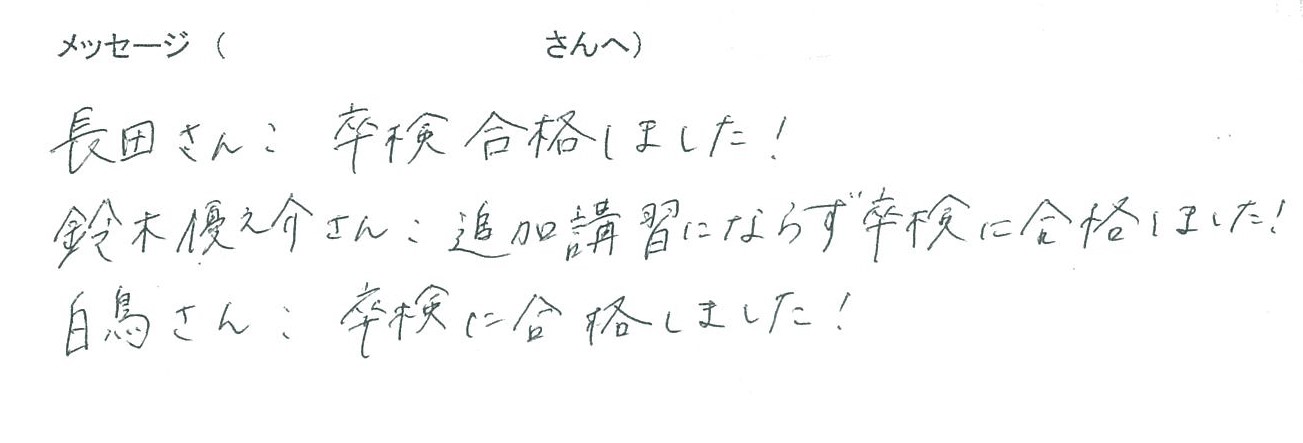 メッセージ（　　　　　　　　さんへ）
長田さん：卒検合格しました！
鈴木優之介さん：追加講習にならず卒検に合格しました！
白鳥さん：卒検に合格しました！